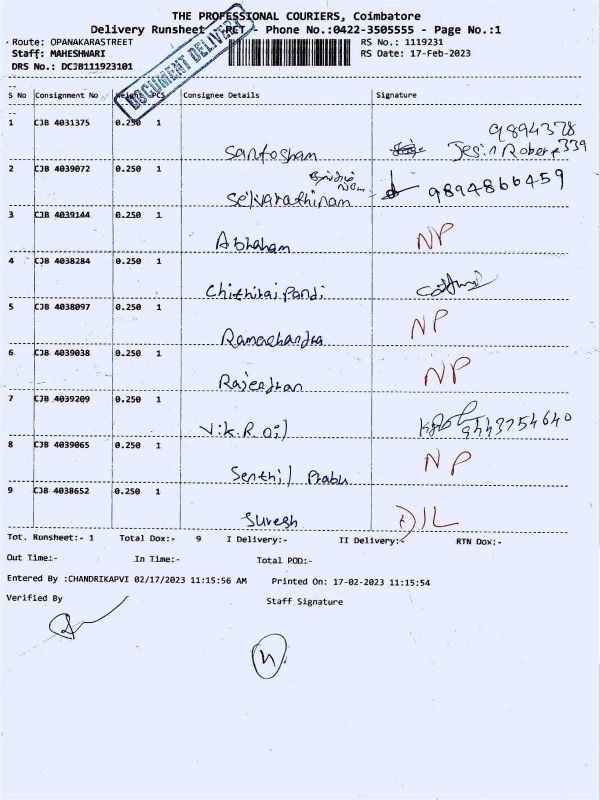 THE PROFESSIONAL COURIERS, Coimbatore
Delivery Runsheet -RCT - Phone No.:0422-3505555 - Page No.:1
Route: OPANAKARASTREET
RS No.: 1119231
Staff: MAHESHWARI
RS Date: 17-Feb-2023
DRS No.: DCJB111923101
DOCUMENT DELIVERY
S No Consignment No Weight PCS Consignee Details Signature
1 CJB 4031375 0.250 1 Santosham 9894378339 Jesin Robert
2 CJB 4039072 0.250 1 Selvarathinam 9894866459
3 CJB 4039144 0.250 1 Abraham NP
4 CJB 4038284 0.250 1 Chithirai Pandi
5 CJB 4038097 0.250 1 Ramachandra NP
6 CJB 4039038 0.250 1 Rajendran NP
7 CJB 4039209 0.250 1 V.K.R Oil 9443754640
8 CJB 4039065 0.250 1 Senthil Prabu NP
9 CJB 4038652 0.250 1 Suresh D/L
Tot. Runsheet:- 1 Total Dox:- 9 I Delivery:- II Delivery:- RTN Dox:-
Out Time:- In Time:- Total POD:-
Entered By :CHANDRIKAPVI 02/17/2023 11:15:56 AM Printed On: 17-02-2023 11:15:54
Verified By Staff Signature